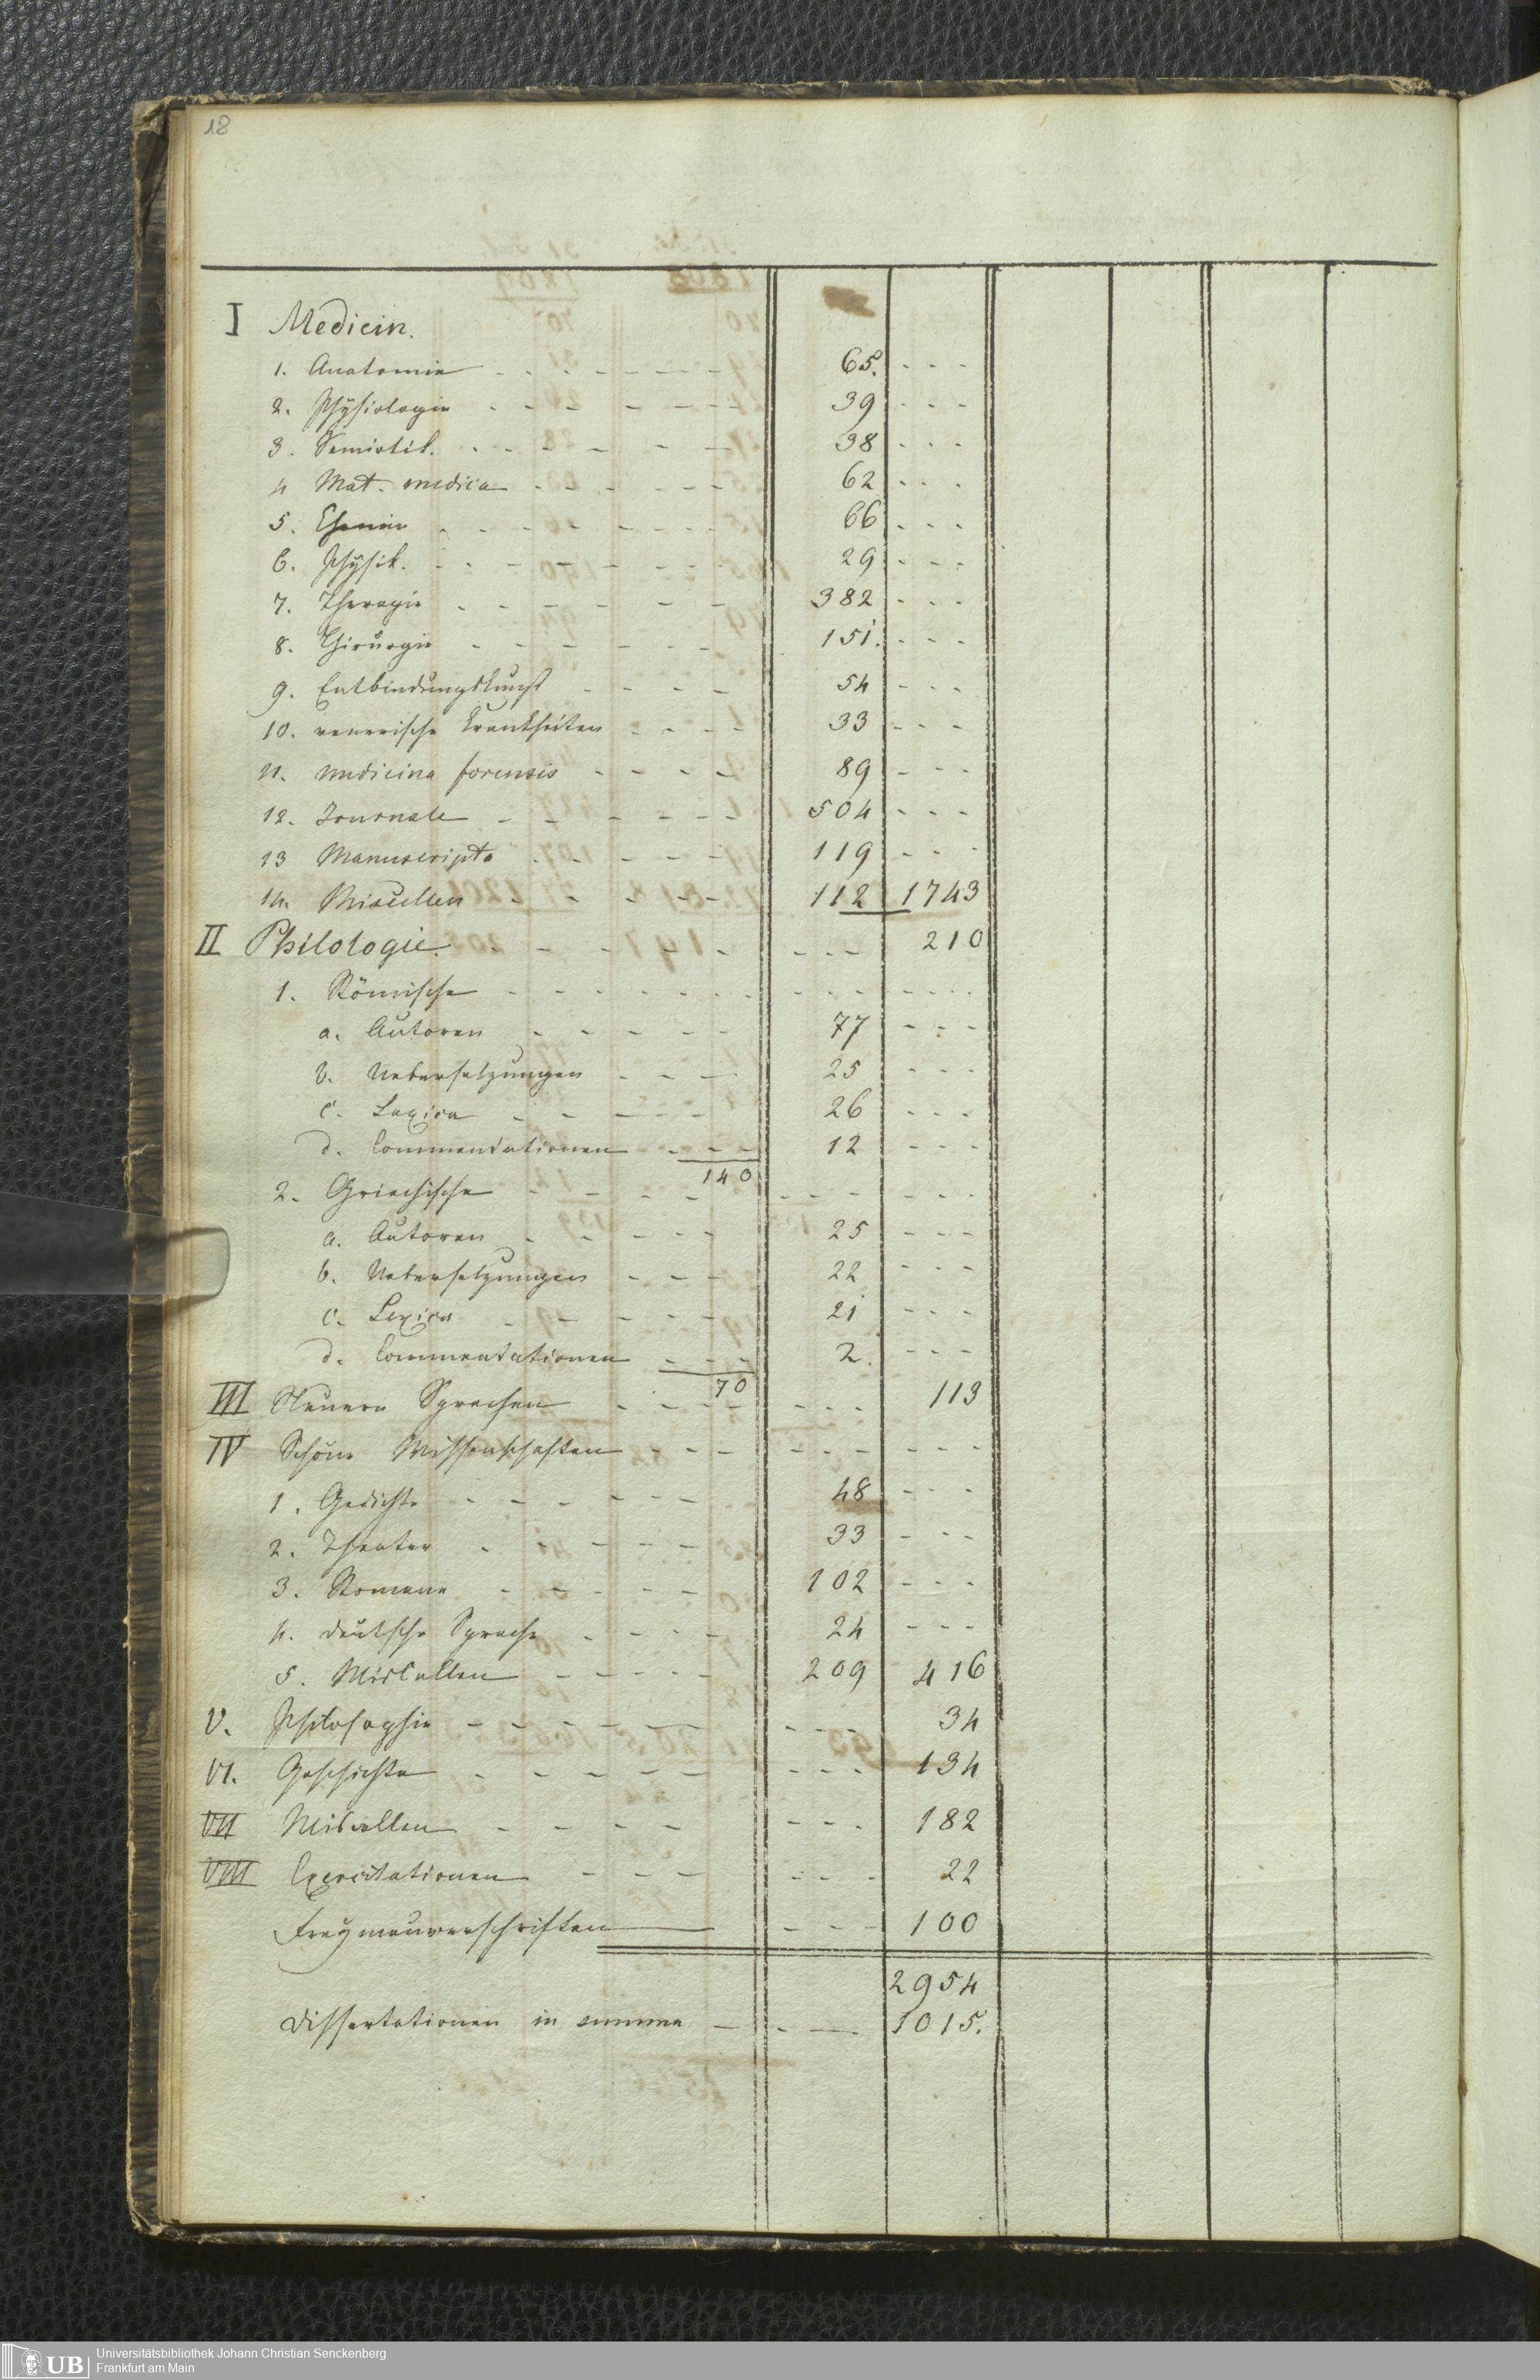 18
I Medicin.
1. Anatomie - - - - - - - 65. - - -
2. Physiologie - - - - - - 39 - - -
3. Semiotik. - - - - - - 38 - - -
4 Mat. medica - - - - - - 62 - - -
5. Chemie - - - - - - - 66 - - -
6. Physik. - - - - - - - 29 - - -
7. Therapie - - - - - - 382 - - -
8. Chirurgie - - - - - - 151. - - -
9. Entbindungskunst - - - - 54 - - -
10. venerische Krankheiten - - - - 33 - - -
11. medicina forensis - - - - 89 - - -
12. Journale - - - - - - 504 - - -
13 Manuscripta - - - - - 119 - - -
14. Miscellen - - - - - 112 1743
II Philologie. - - - - - - - - 210
1. Römische - - - - - - - - - - - -
a. Autoren - - - - - 77 - - -
b. Uebersetzungen - - - 25 - - -
c. Lexica - - - - - 26 - - -
d. Commentationen - - - 12 - - -
140
2. Griechische - - - - - - - - - - -
a. Autoren - - - - - 25 - - -
b. Uebersetzungen - - - 22 - - -
c. Lexica - - - - - 21 - - -
d. Commentationen - - - 2. - - -
70
III Neuere Sprachen - - - - - - - 113
IV Schöne Wissenschaften - - - - - - - - -
1. Gedichte - - - - - - 48 - - -
2. Theater - - - - - - 33 - - -
3. Romane - - - - - 102 - - -
4. deutsche Sprache - - - - 24 - - -
5. Miscellen - - - - - 209 416
V. Philosophie - - - - - - - - - 34
VI. Geschichte - - - - - - - - - 134
VII Miscellen - - - - - - - 182
VIII Exercitationen - - - - - - 22
Freymaurerschriften - - - - 100
2954
Dissertationen in summa - - - 1015.
UB Universitätsbibliothek Johann Christian Senckenberg
Frankfurt am Main